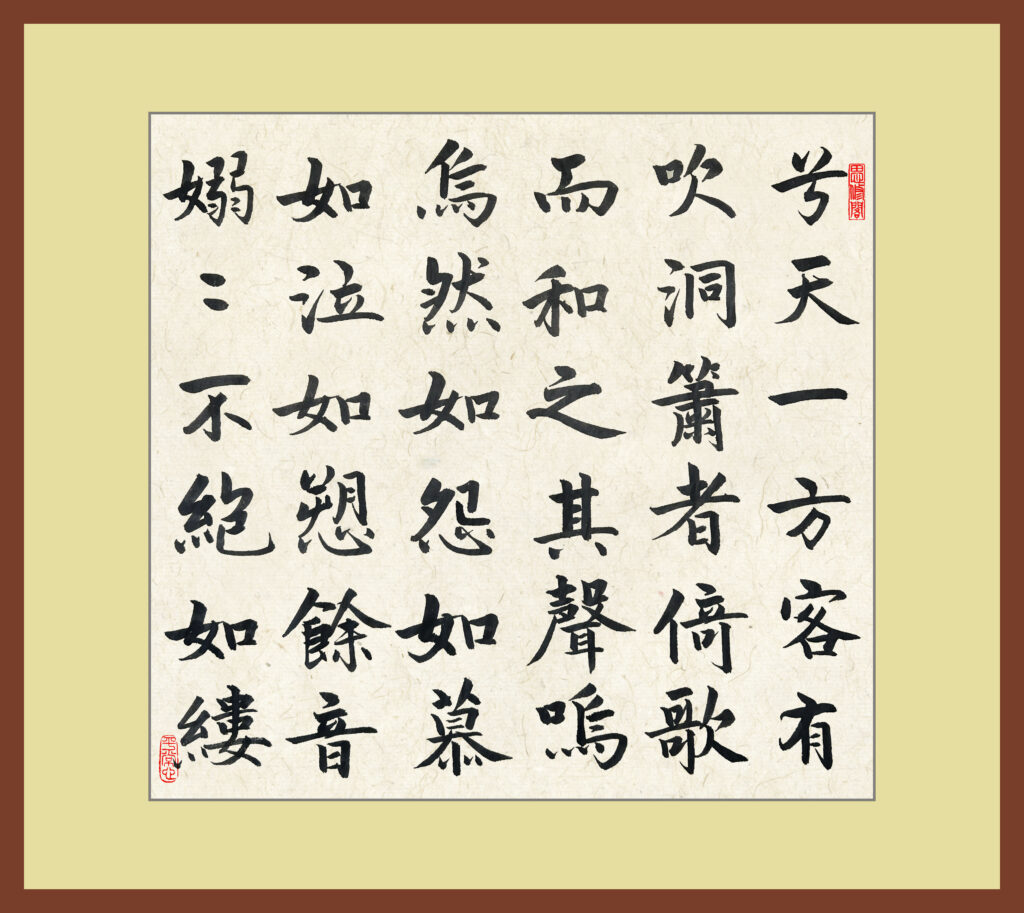 思修閣
兮天一方客有
吹洞簫者倚歌
而和之其聲嗚
烏然如怨如慕
如泣如愬餘音
嫋〻不絶如縷
平常心